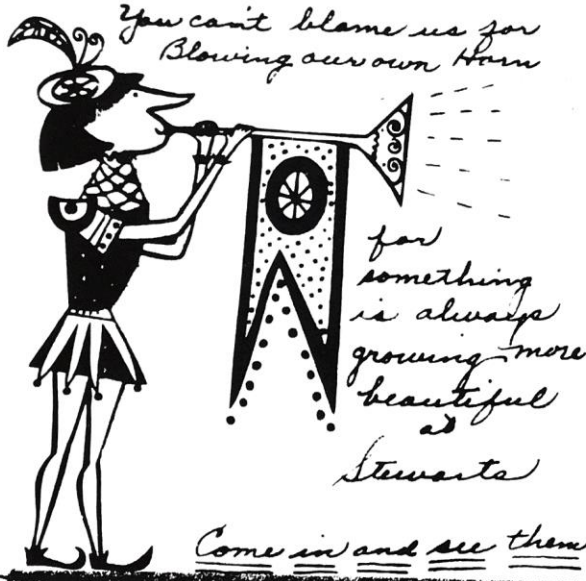 You can't blame us for
Blowing our own Horn
for
something
is always
growing more
beautiful
at
Stewarts
Come in and see them